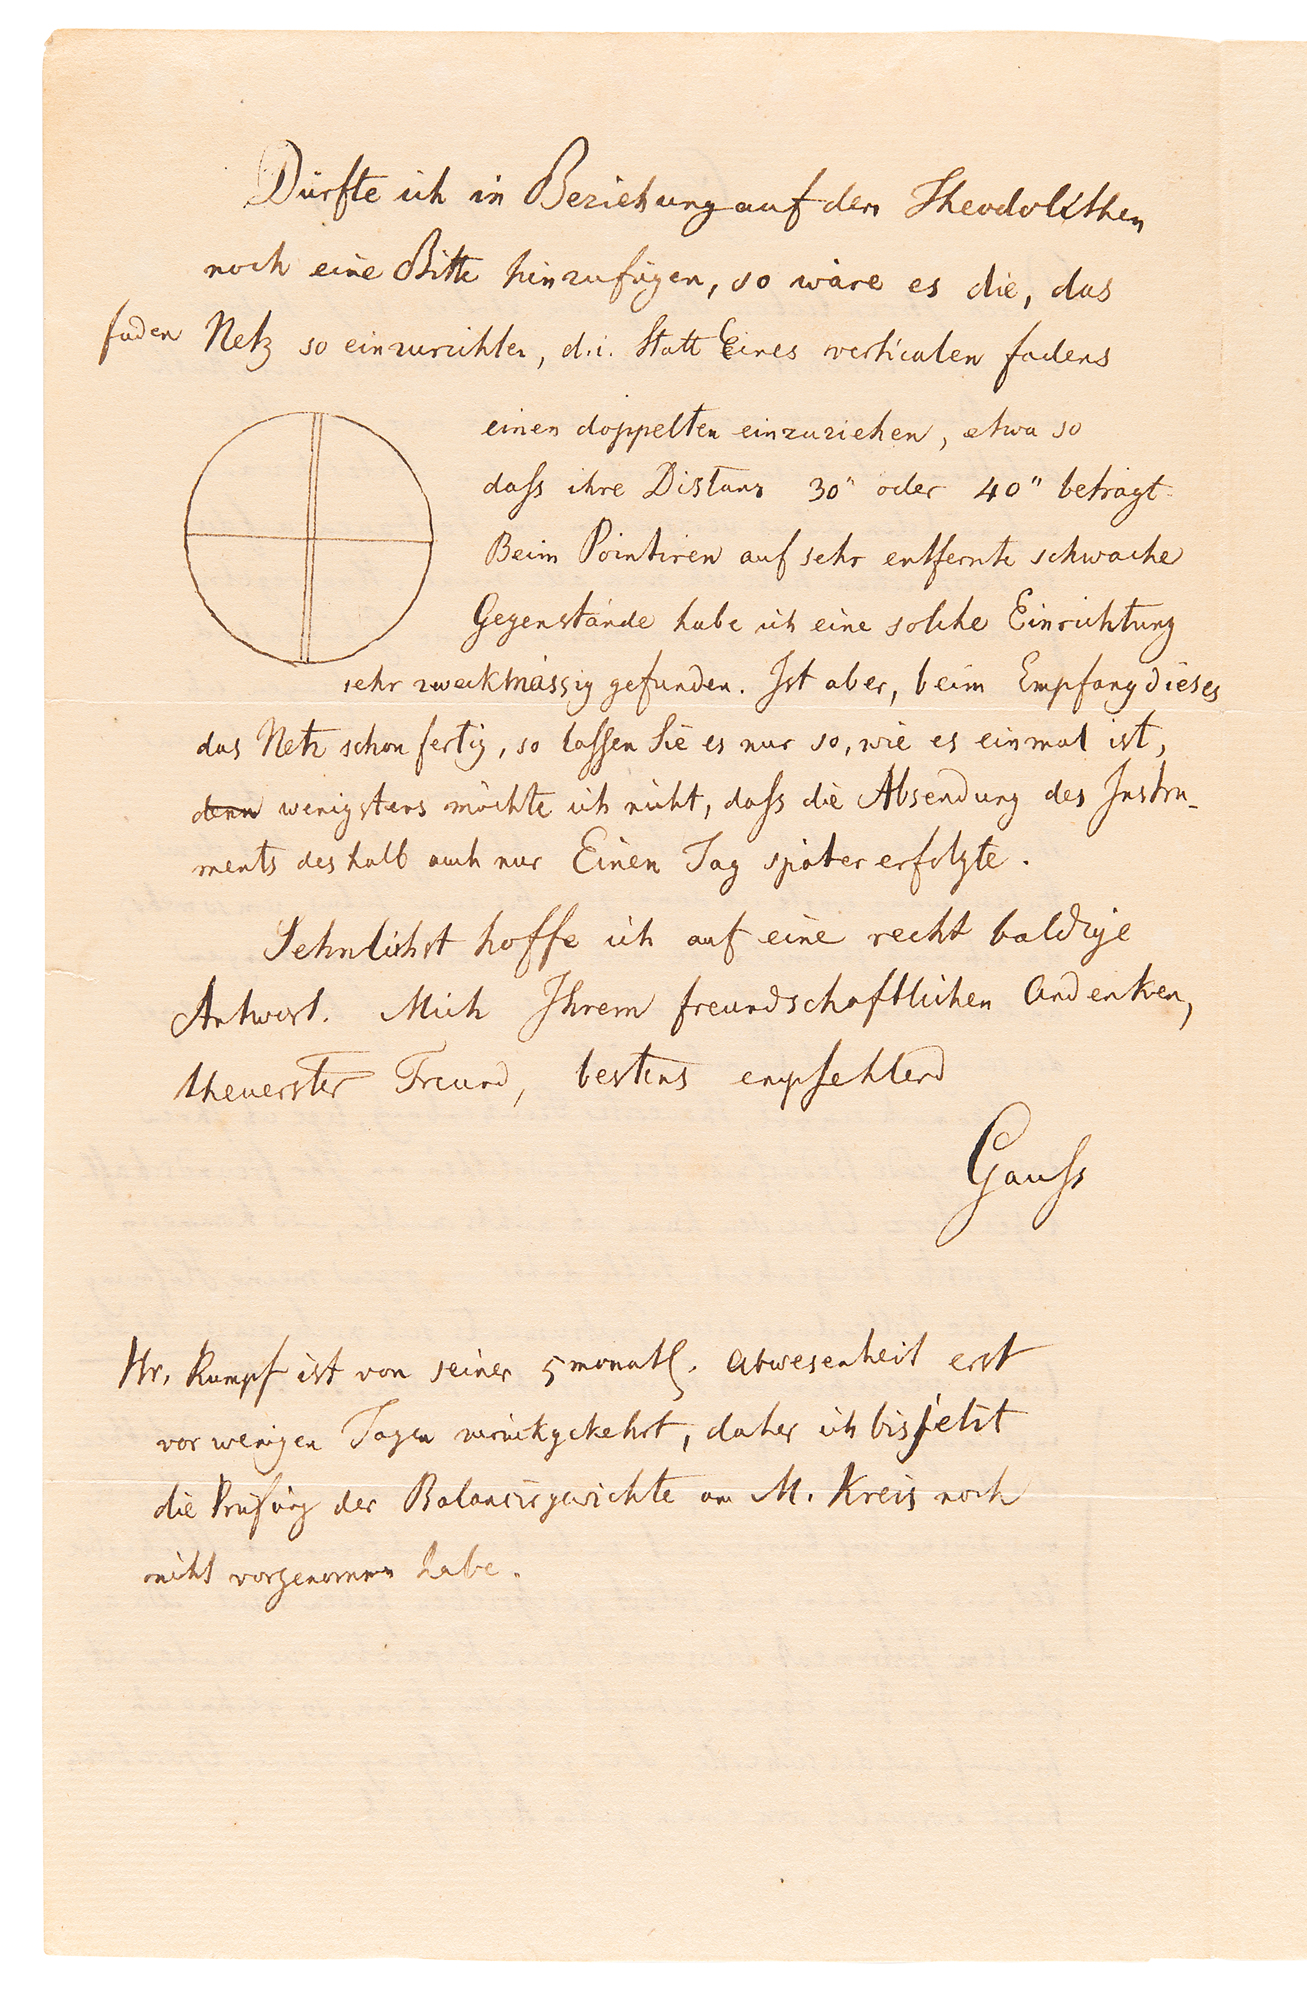 Dürfte ich in Beziehung auf den Theodolithen
noch eine Bitte hinzufügen, so wäre es die, das
faden Netz so einzurichten, d.i. Statt Eines verticalen fadens
einen doppelten einzuziehen, etwa so
daſs ihre Distanz 30" oder 40" beträgt.
Beim Pointiren auf sehr entfernte schwache
Gegenstände habe ich eine solche Einrichtung
sehr zweckmässig gefunden. Ist aber, beim Empfang dieses
das Netz schon fertig, so laſſen Sie es nur so, wie es einmal ist,
denn wenigstens möchte ich nicht, daſs die Absendung des Instru-
ments deshalb auch nur Einen Tag später erfolgte.
Sehnlichst hoffe ich auf eine recht baldige
Antwort. Mich Ihrem freundschaftlichen Andenken,
theuerster Freund, bestens empfehlend
Gauſs
Hr. Rumpf ist von seiner 5monatl. Abwesenheit erst
vor wenigen Tagen zurückgekehrt, daher ich bis jetzt
die Prüfung der Balancirgewichte am M. Kreis noch
nicht vorgenommen habe.